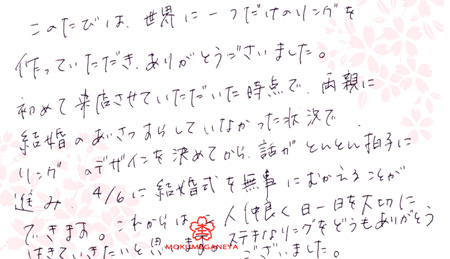 このたびは、世界に一つだけのリングを
作っていただき、ありがとうございました。
初めて来店させていただいた時点で、両親に
結婚のあいさつすらしていなかった状況で、
リングのデザインを決めてから、話がとんとん拍子に
進み、4/6に結婚式を無事にむかえることが
できます。これからは二人仲良く日一日を大切に
いきていきたいと思います。ステキなリングをどうもありがとう
ございました。
MOKUMEGANEYA